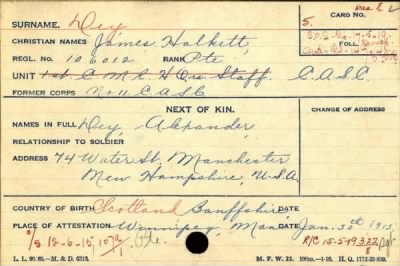 SURNAME. Dey
CARD NO.
5.
CHRISTIAN NAMES James Halkett,
FOLL.
REGL. NO. 106012 RANK Pte
UNIT 1st C.M.R. H.Qu. Staff. C.A.S.C
FORMER CORPS No. 11 C.A.S.C
NEXT OF KIN.
CHANGE OF ADDRESS
NAMES IN FULL Dey, Alexander,
RELATIONSHIP TO SOLDIER
ADDRESS 74 Water St, Manchester
New Hampshire, U.S.A.
COUNTRY OF BIRTH Scotland Banffshire DATE
PLACE OF ATTESTATION Winnipeg, Man. DATE Jan. 30th 1915
Pte.
L. L. 90-89.—M. & D. M. F. W. 22.